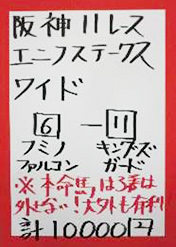 阪神11レース
エニフステークス
ワイド
6 — 11
フミノファルコン
キングズガード
※本命馬は3着は外せない!大外も有利
計10000円